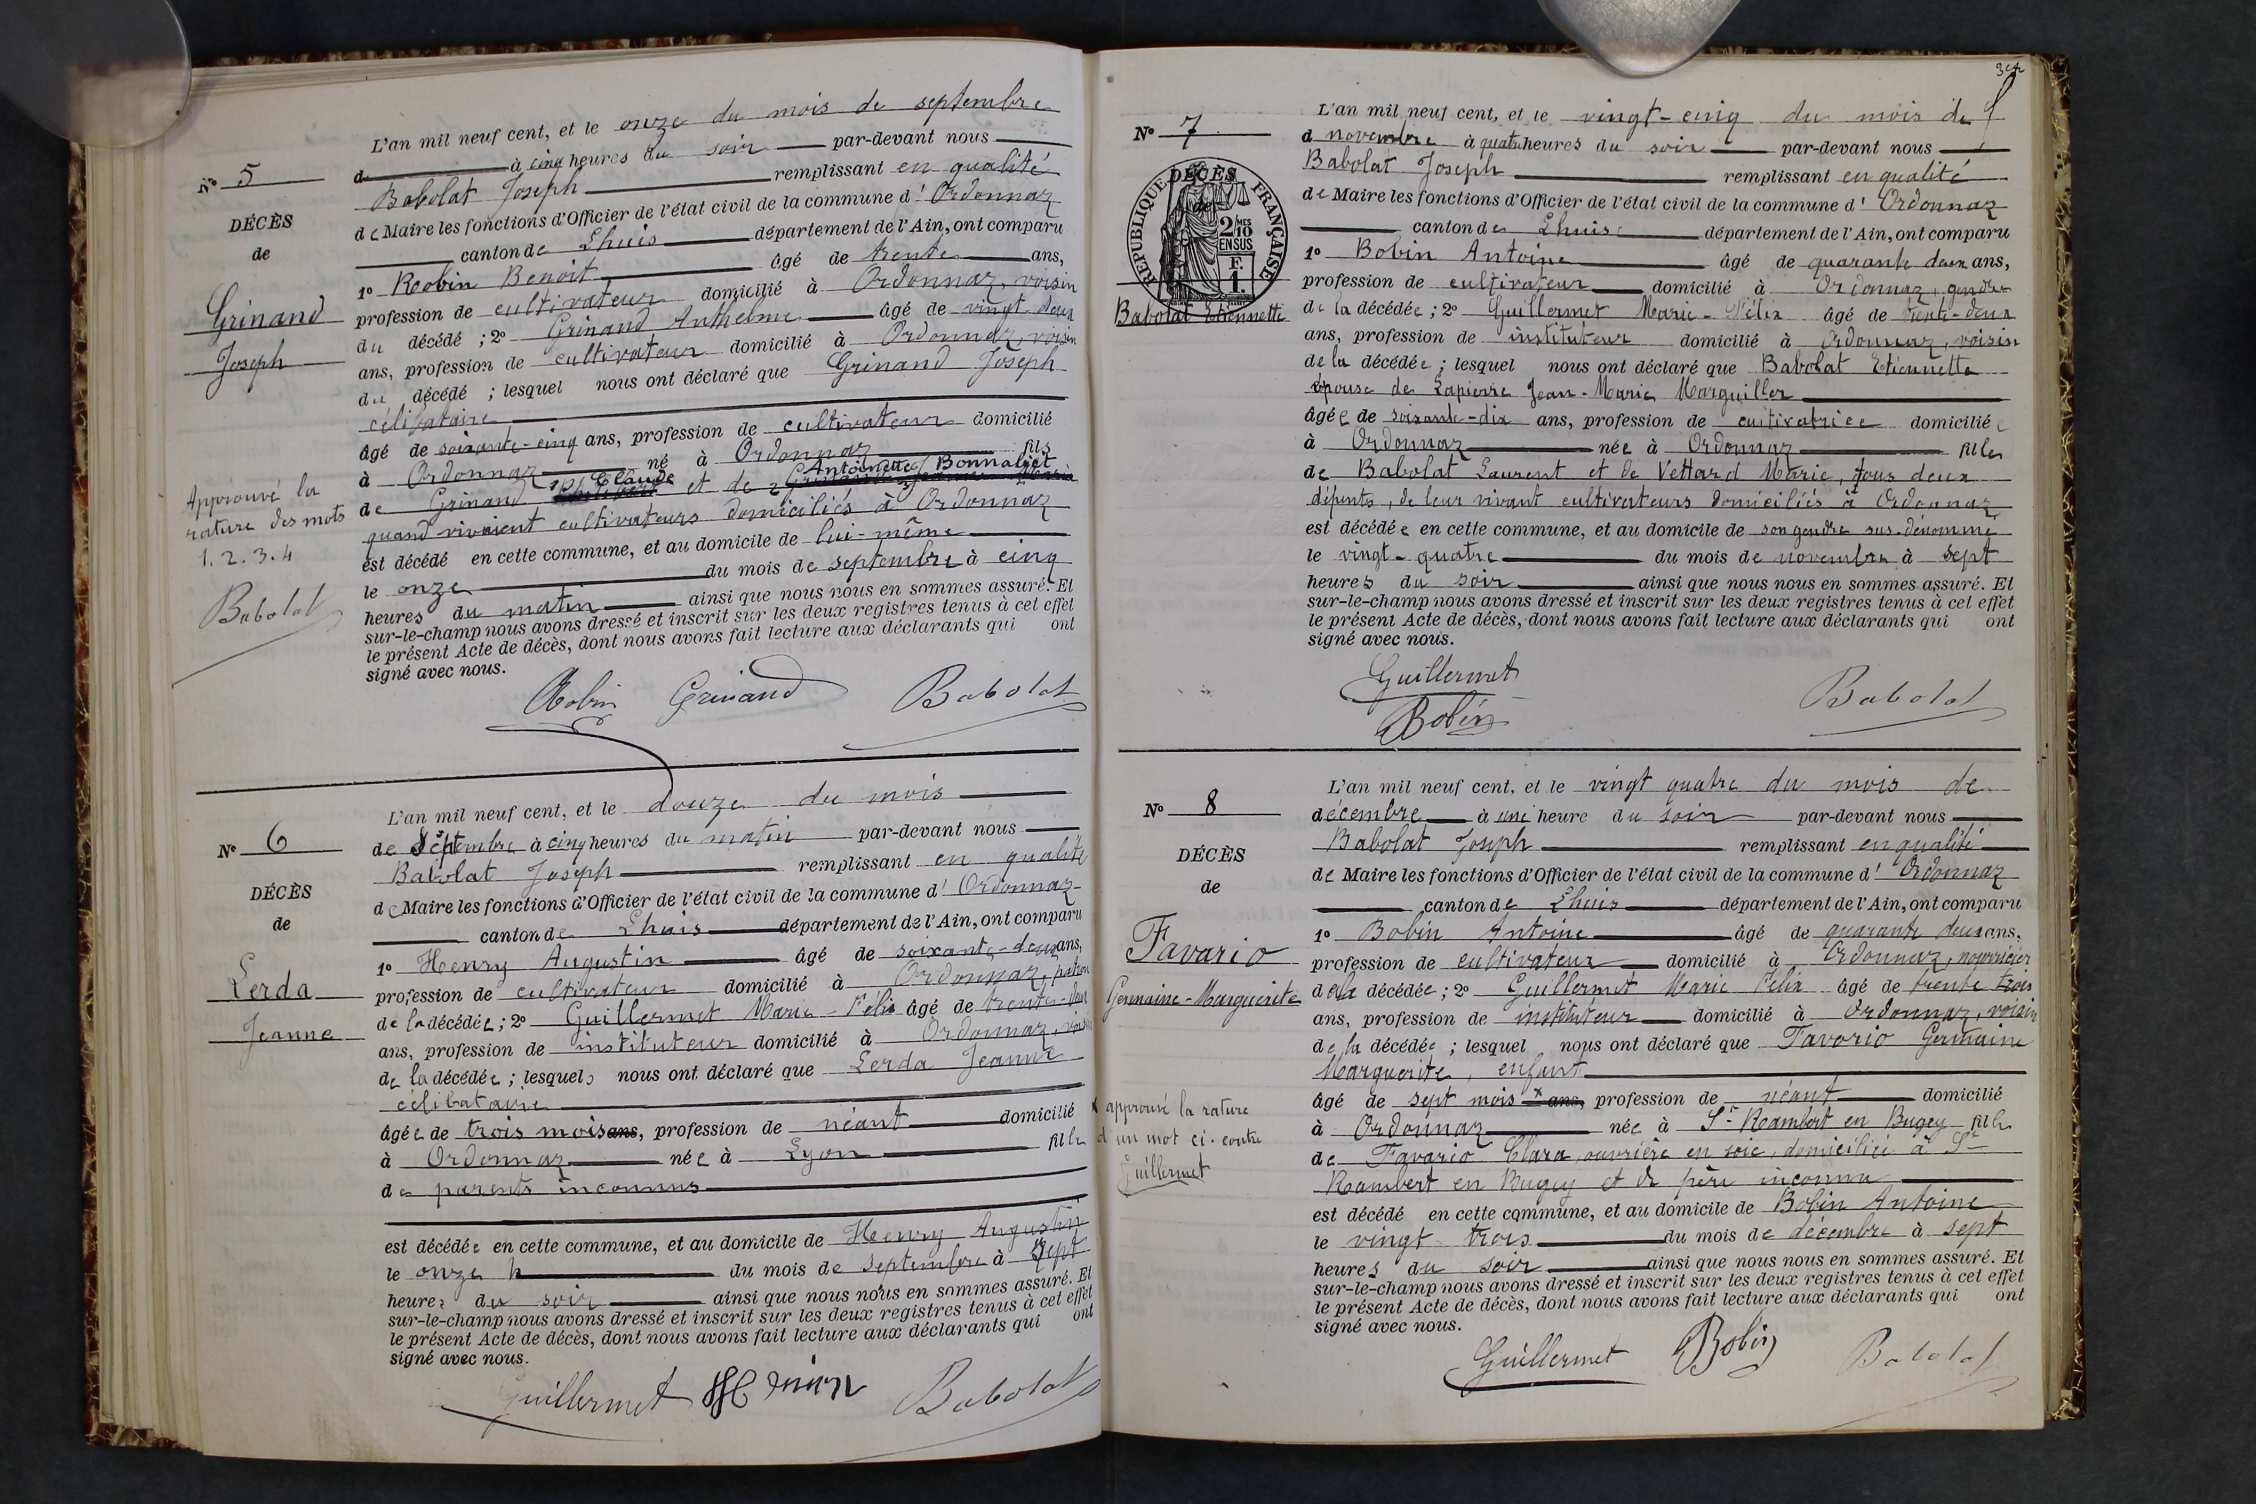 L'an mil neuf cent, et le onze du mois de septembre
N° 5
d à cinq heures du soir par-devant nous
Babolat Joseph remplissant en qualité
DÉCÈS
de Maire les fonctions d'Officier de l'état civil de la commune d' Ordonnaz
de
canton de Lhuis département de l'Ain, ont comparu
1° Robin Benoit âgé de trente ans,
Grinand
profession de cultivateur domicilié à Ordonnaz, voisin
du décédé ; 2° Grinand Anthelme âgé de vingt deux
Joseph
ans, profession de cultivateur domicilié à Ordonnaz, voisin
du décédé ; lesquel nous ont déclaré que Grinand Joseph
célibataire
âgé de soixante-cinq ans, profession de cultivateur domicilié
à Ordonnaz né à Ordonnaz fils
Claude Antoinette Bonnaliet
de Grinand et de
quand vivaient cultivateurs domiciliés à Ordonnaz
Approuvé la
rature des mots
1. 2. 3. 4
Babolat
est décédé en cette commune, et au domicile de lui-même
le onze du mois de septembre à cinq
heures du matin ainsi que nous nous en sommes assuré. Et
sur-le-champ nous avons dressé et inscrit sur les deux registres tenus à cet effet
le présent Acte de décès, dont nous avons fait lecture aux déclarants qui ont
signé avec nous.
Robin Grinand Babolat
L'an mil neuf cent, et le douze du mois
N° 6
de septembre à cinq heures du matin par-devant nous
Babolat Joseph remplissant en qualité
DÉCÈS
de Maire les fonctions d'Officier de l'état civil de la commune d' Ordonnaz
de
canton de Lhuis département de l'Ain, ont comparu
1° Henry Augustin âgé de soixante-deux ans,
Lerda
profession de cultivateur domicilié à Ordonnaz, patron
de la décédée ; 2° Guillermet Marie-Félix âgé de trente-deux
Jeanne
ans, profession de instituteur domicilié à Ordonnaz, voisin
de la décédée ; lesquels nous ont déclaré que Lerda Jeanne
célibataire
âgée de trois mois ans, profession de néant domicilié
à Ordonnaz née à Lyon fille
de parents inconnus
est décédée en cette commune, et au domicile de Henry Augustin
le onze du mois de septembre à sept
heures du soir ainsi que nous nous en sommes assuré. Et
sur-le-champ nous avons dressé et inscrit sur les deux registres tenus à cet effet
le présent Acte de décès, dont nous avons fait lecture aux déclarants qui ont
signé avec nous.
Guillermet Babolat
L'an mil neuf cent, et le vingt-cinq du mois de
N° 7
d novembre à quatre heures du soir par-devant nous
Babolat Joseph remplissant en qualité
DÉCÈS
de
RÉPUBLIQUE FRANÇAISE
2/10 MES
EN SUS
F.
1.
de Maire les fonctions d'Officier de l'état civil de la commune d' Ordonnaz
canton de Lhuis département de l'Ain, ont comparu
1° Bobin Antoine âgé de quarante deux ans,
profession de cultivateur domicilié à Ordonnaz, gendre
Babolat Etiennette
de la décédée ; 2° Guillermet Marie-Félix âgé de trente-deux
ans, profession de instituteur domicilié à Ordonnaz, voisin
de la décédée ; lesquel nous ont déclaré que Babolat Etiennette
épouse de Lapierre Jean-Marie Marguiller
âgée de soixante-dix ans, profession de cultivatrice domiciliée
à Ordonnaz née à Ordonnaz fille
de Babolat Laurent et de Vettard Marie, tous deux
défunts, de leur vivant cultivateurs domiciliés à Ordonnaz
est décédée en cette commune, et au domicile de son gendre sus-dénommé
le vingt-quatre du mois de novembre à sept
heures du soir ainsi que nous nous en sommes assuré. Et
sur-le-champ nous avons dressé et inscrit sur les deux registres tenus à cet effet
le présent Acte de décès, dont nous avons fait lecture aux déclarants qui ont
signé avec nous.
Guillermet
Bobin Babolat
L'an mil neuf cent, et le vingt quatre du mois de
N° 8
décembre à une heure du soir par-devant nous
Babolat Joseph remplissant en qualité
DÉCÈS
de Maire les fonctions d'Officier de l'état civil de la commune d' Ordonnaz
de
canton de Lhuis département de l'Ain, ont comparu
1° Bobin Antoine âgé de quarante deux ans,
Favario
profession de cultivateur domicilié à Ordonnaz, nourricier
Germaine-Marguerite
de la décédée ; 2° Guillermet Marie Félix âgé de trente trois
ans, profession de instituteur domicilié à Ordonnaz, voisin
de la décédée ; lesquel nous ont déclaré que Favorio Germaine
Marguerite, enfant
âgé de sept mois x ans, profession de néant domicilié
x approuvé la rature
d'un mot ci-contre
Guillermet
à Ordonnaz née à St Rambert en Bugey fille
de Favario Clara, ouvrière en soie, domiciliée à St
Rambert en Bugey et de père inconnu
est décédé en cette commune, et au domicile de Bobin Antoine
le vingt trois du mois de décembre à sept
heures du soir ainsi que nous nous en sommes assuré. Et
sur-le-champ nous avons dressé et inscrit sur les deux registres tenus à cet effet
le présent Acte de décès, dont nous avons fait lecture aux déclarants qui ont
signé avec nous.
Guillermet Bobin Babolat